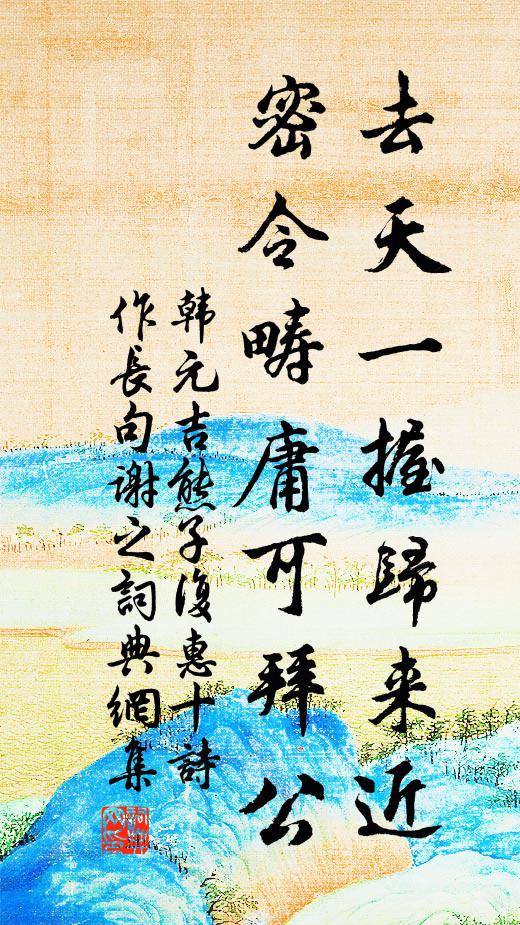 去天一握歸来近
密令疇庸可拜公
韩元吉熊子復惠十詩
作長句谢之詞典網集